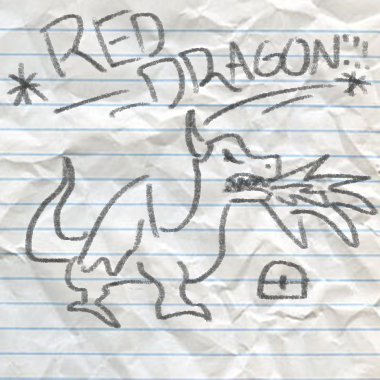 RED
DRAGON!!!